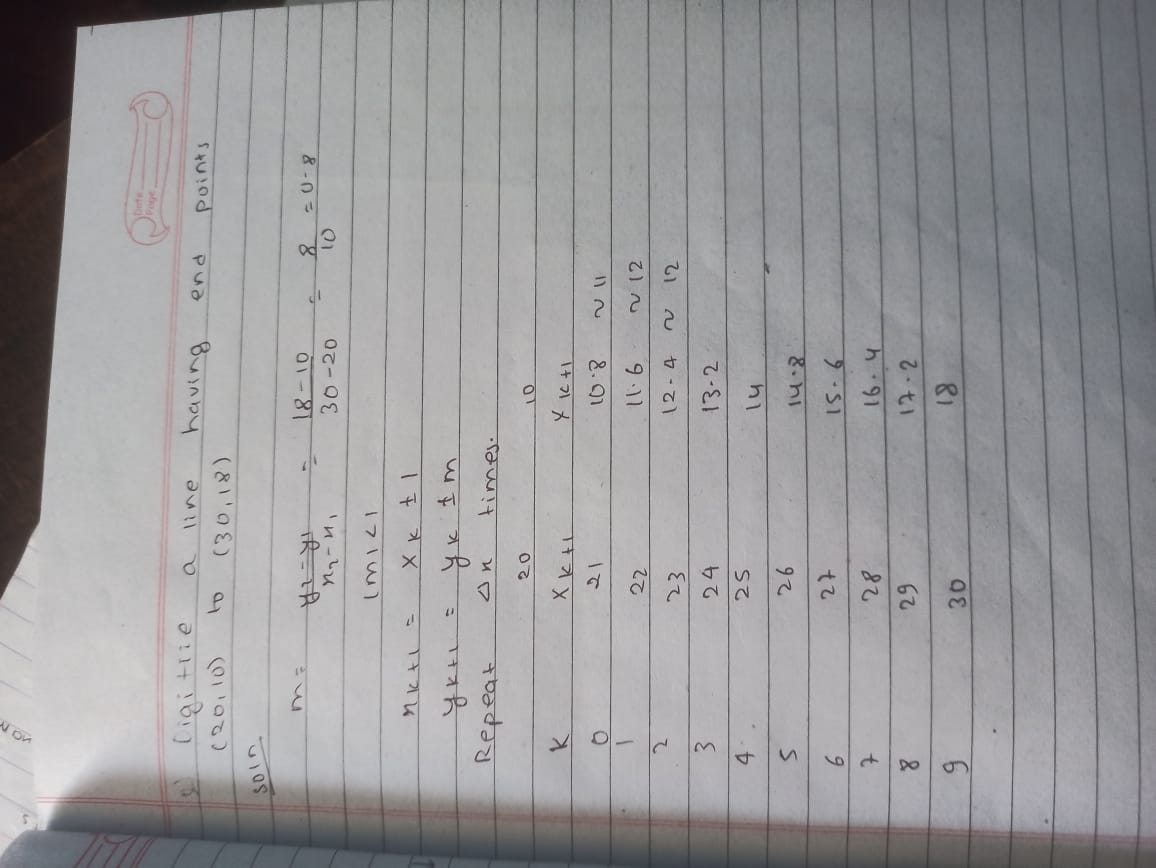 Date
Page
Digitize a line having end points
(20,10) to (30,18)
soln
m = y2-y1 / x2-x1 = 18-10 / 30-20 = 8 / 10 = 0.8
|m|<1
xk+1 = xk ± 1
yk+1 = yk ± m
Repeat Δx times.
20 10
K xk+1 yk+1
0 21 10.8 ~ 11
1 22 11.6 ~ 12
2 23 12.4 ~ 12
3 24 13.2
4 25 14
5 26 14.8
6 27 15.6
7 28 16.4
8 29 17.2
9 30 18